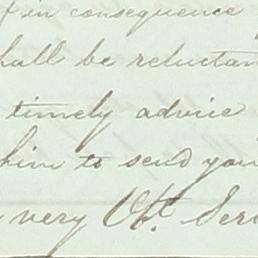 in consequence
shall be reluctan
timely advice
him to send you
very Obt. Ser